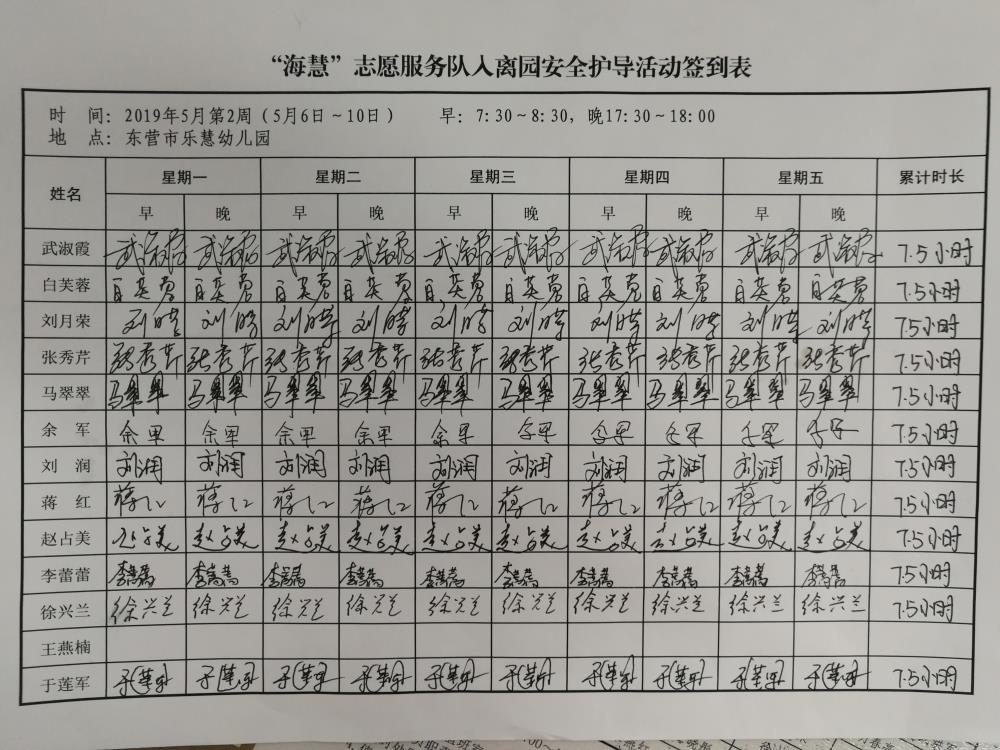 “海慧”志愿服务队入离园安全护导活动签到表
时 间：2019年5月第2周（5月6日～10日） 早：7:30～8:30，晚17:30～18:00
地 点：东营市乐慧幼儿园
姓名 星期一 星期二 星期三 星期四 星期五 累计时长
早 晚 早 晚 早 晚 早 晚 早 晚
武淑霞 武淑霞 武淑霞 武淑霞 武淑霞 武淑霞 武淑霞 武淑霞 武淑霞 武淑霞 武淑霞 7.5小时
白芙蓉 白芙蓉 白芙蓉 白芙蓉 白芙蓉 白芙蓉 白芙蓉 白芙蓉 白芙蓉 白芙蓉 白芙蓉 7.5小时
刘月荣 刘月荣 刘月荣 刘月荣 刘月荣 刘月荣 刘月荣 刘月荣 刘月荣 刘月荣 刘月荣 7.5小时
张秀芹 张秀芹 张秀芹 张秀芹 张秀芹 张秀芹 张秀芹 张秀芹 张秀芹 张秀芹 张秀芹 7.5小时
马翠翠 马翠翠 马翠翠 马翠翠 马翠翠 马翠翠 马翠翠 马翠翠 马翠翠 马翠翠 马翠翠 7.5小时
余 军 余军 余军 余军 余军 余军 余军 余军 余军 余军 余军 7.5小时
刘 润 刘润 刘润 刘润 刘润 刘润 刘润 刘润 刘润 刘润 刘润 7.5小时
蒋 红 蒋红 蒋红 蒋红 蒋红 蒋红 蒋红 蒋红 蒋红 蒋红 蒋红 7.5小时
赵占美 赵占美 赵占美 赵占美 赵占美 赵占美 赵占美 赵占美 赵占美 赵占美 赵占美 7.5小时
李蕾蕾 李蕾蕾 李蕾蕾 李蕾蕾 李蕾蕾 李蕾蕾 李蕾蕾 李蕾蕾 李蕾蕾 李蕾蕾 李蕾蕾 7.5小时
徐兴兰 徐兴兰 徐兴兰 徐兴兰 徐兴兰 徐兴兰 徐兴兰 徐兴兰 徐兴兰 徐兴兰 徐兴兰 7.5小时
王燕楠
于莲军 于莲军 于莲军 于莲军 于莲军 于莲军 于莲军 于莲军 于莲军 于莲军 于莲军 7.5小时